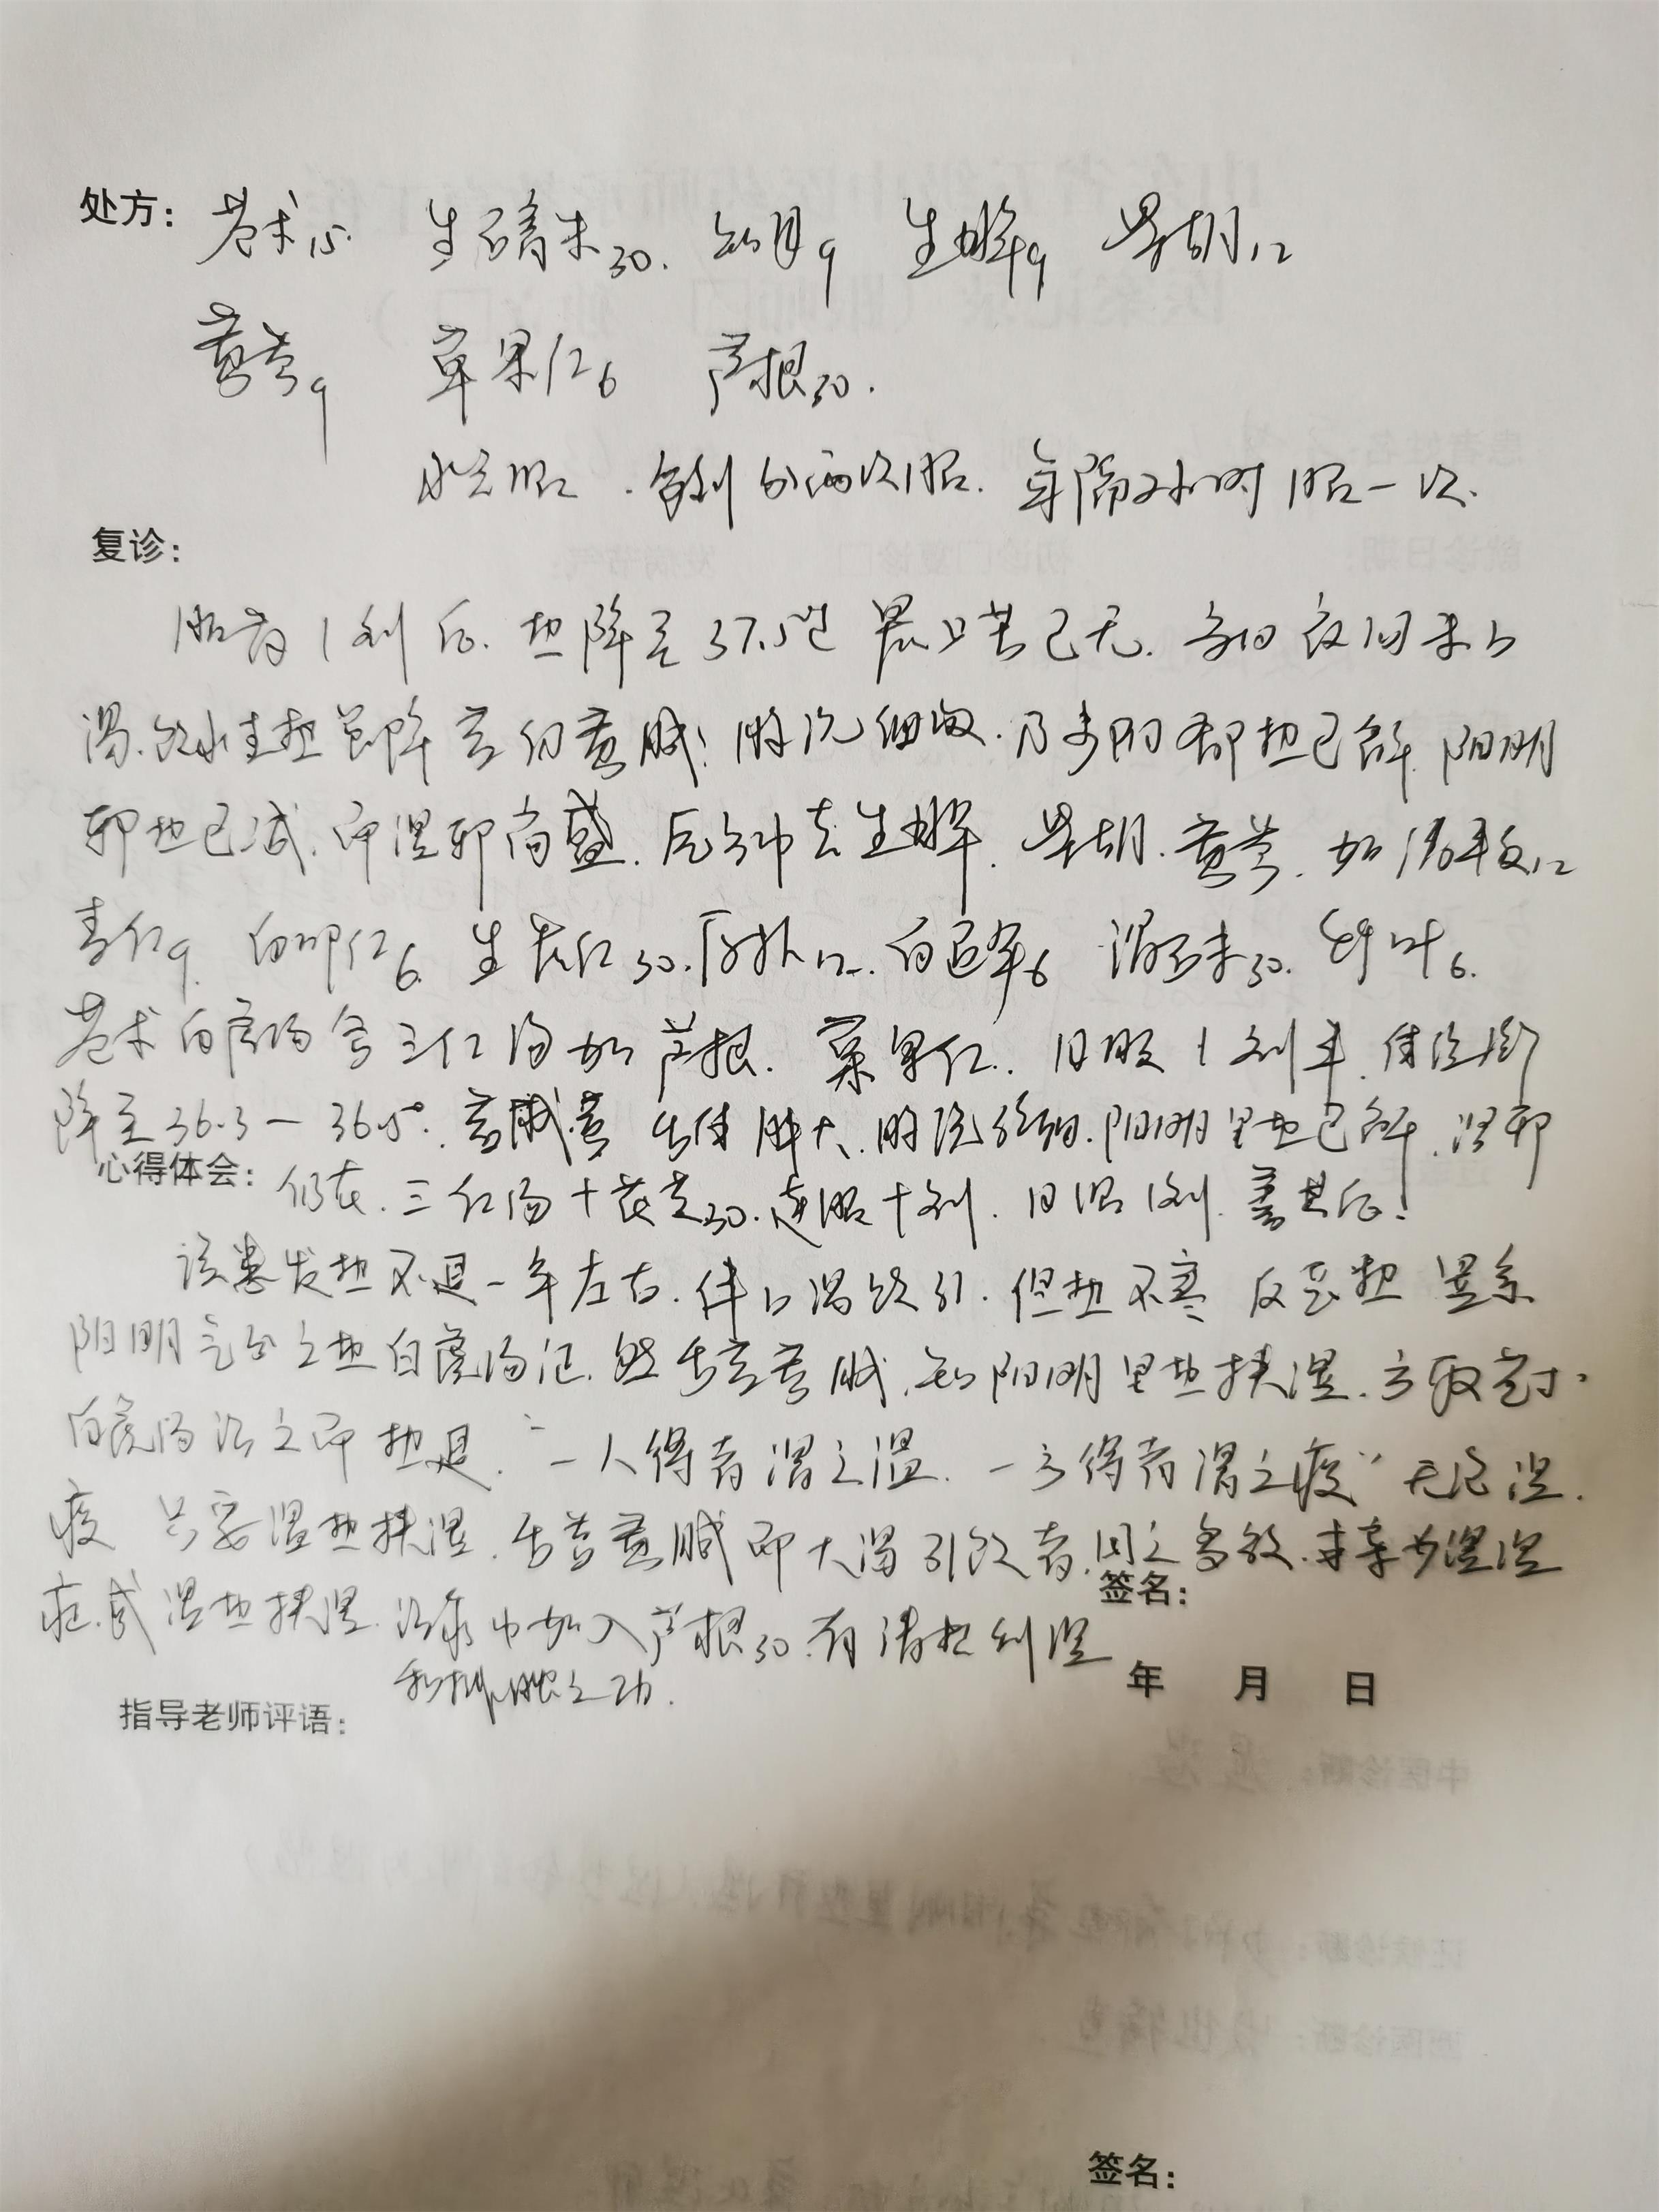 处方： 苍术15. 生石膏末30. 知母9 生甘草9 柴胡12
黄芩9 草果仁6 芦根30.
水煎服. 每剂分两次服. 每隔 小时服一次.
复诊：
服药1剂后. 热降至37.5℃ 晨 口苦已无. 今日夜间未口
渴. 饮水 热 降 苔仍黄腻! 脉沉细数. 乃少阳郁热已解. 阳明
邪热已减. 即湿邪尚盛. 原方中去生甘草. 柴胡. 黄芩. 加清半夏12
杏仁9. 白叩仁6. 生苡仁30. 厚朴12. 白通草6 滑石末30. 竹叶6.
苍术白虎汤合三仁汤加芦根. 草果仁. 日服1剂半. 体温渐
降至36.3—36.5°. 苔腻黄 舌体胖大. 脉沉 细. 阳明里热已解. 湿邪
心得体会： 仍在. 三仁汤+ 30. 连服十剂. 日服1剂. 善其后!
该患发热不退一年左右. 伴口渴饮引. 但热不寒 反恶热 显系
阳明气分之热白虎汤证. 然舌苔黄腻. 知阳明里热挟湿. 方取苍术
白虎汤治之即热退. “一人得者谓之温. 一方得者谓之疫” 无论温.
疫 只要温热挟湿. 舌苔黄腻即大渴引饮者. 用之多效. 湿温
症. 或湿热挟湿. 治 中加入芦根30. 有清热利湿
之功.
签名：
年 月 日
指导老师评语：
签名：